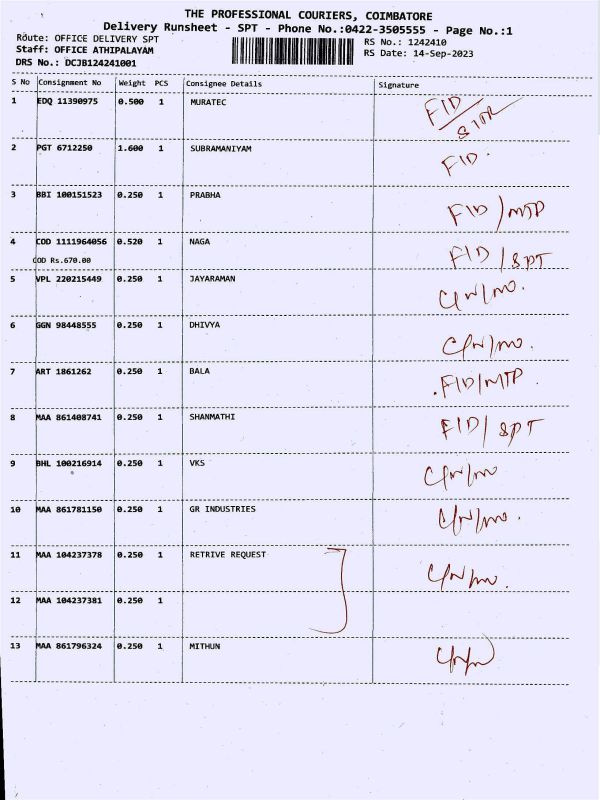 THE PROFESSIONAL COURIERS, COIMBATORE
Delivery Runsheet - SPT - Phone No.:0422-3505555 - Page No.:1
Route: OFFICE DELIVERY SPT
RS No.: 1242410
Staff: OFFICE ATHIPALAYAM
RS Date: 14-Sep-2023
DRS No.: DCJB124241001
S No Consignment No Weight PCS Consignee Details Signature
1 EDQ 11390975 0.500 1 MURATEC FID/
2 PGT 6712250 1.600 1 SUBRAMANIYAM FID.
3 BBI 100151523 0.250 1 PRABHA FID/MTP
4 COD 1111964056 0.520 1 NAGA FID/SPT
COD Rs.670.00
5 VPL 220215449 0.250 1 JAYARAMAN
6 GGN 98448555 0.250 1 DHIVYA
7 ART 1861262 0.250 1 BALA .FID/MTP.
8 MAA 861408741 0.250 1 SHANMATHI FID/SPT
9 BHL 100216914 0.250 1 VKS
10 MAA 861781150 0.250 1 GR INDUSTRIES
11 MAA 104237378 0.250 1 RETRIVE REQUEST
12 MAA 104237381 0.250 1
13 MAA 861796324 0.250 1 MITHUN